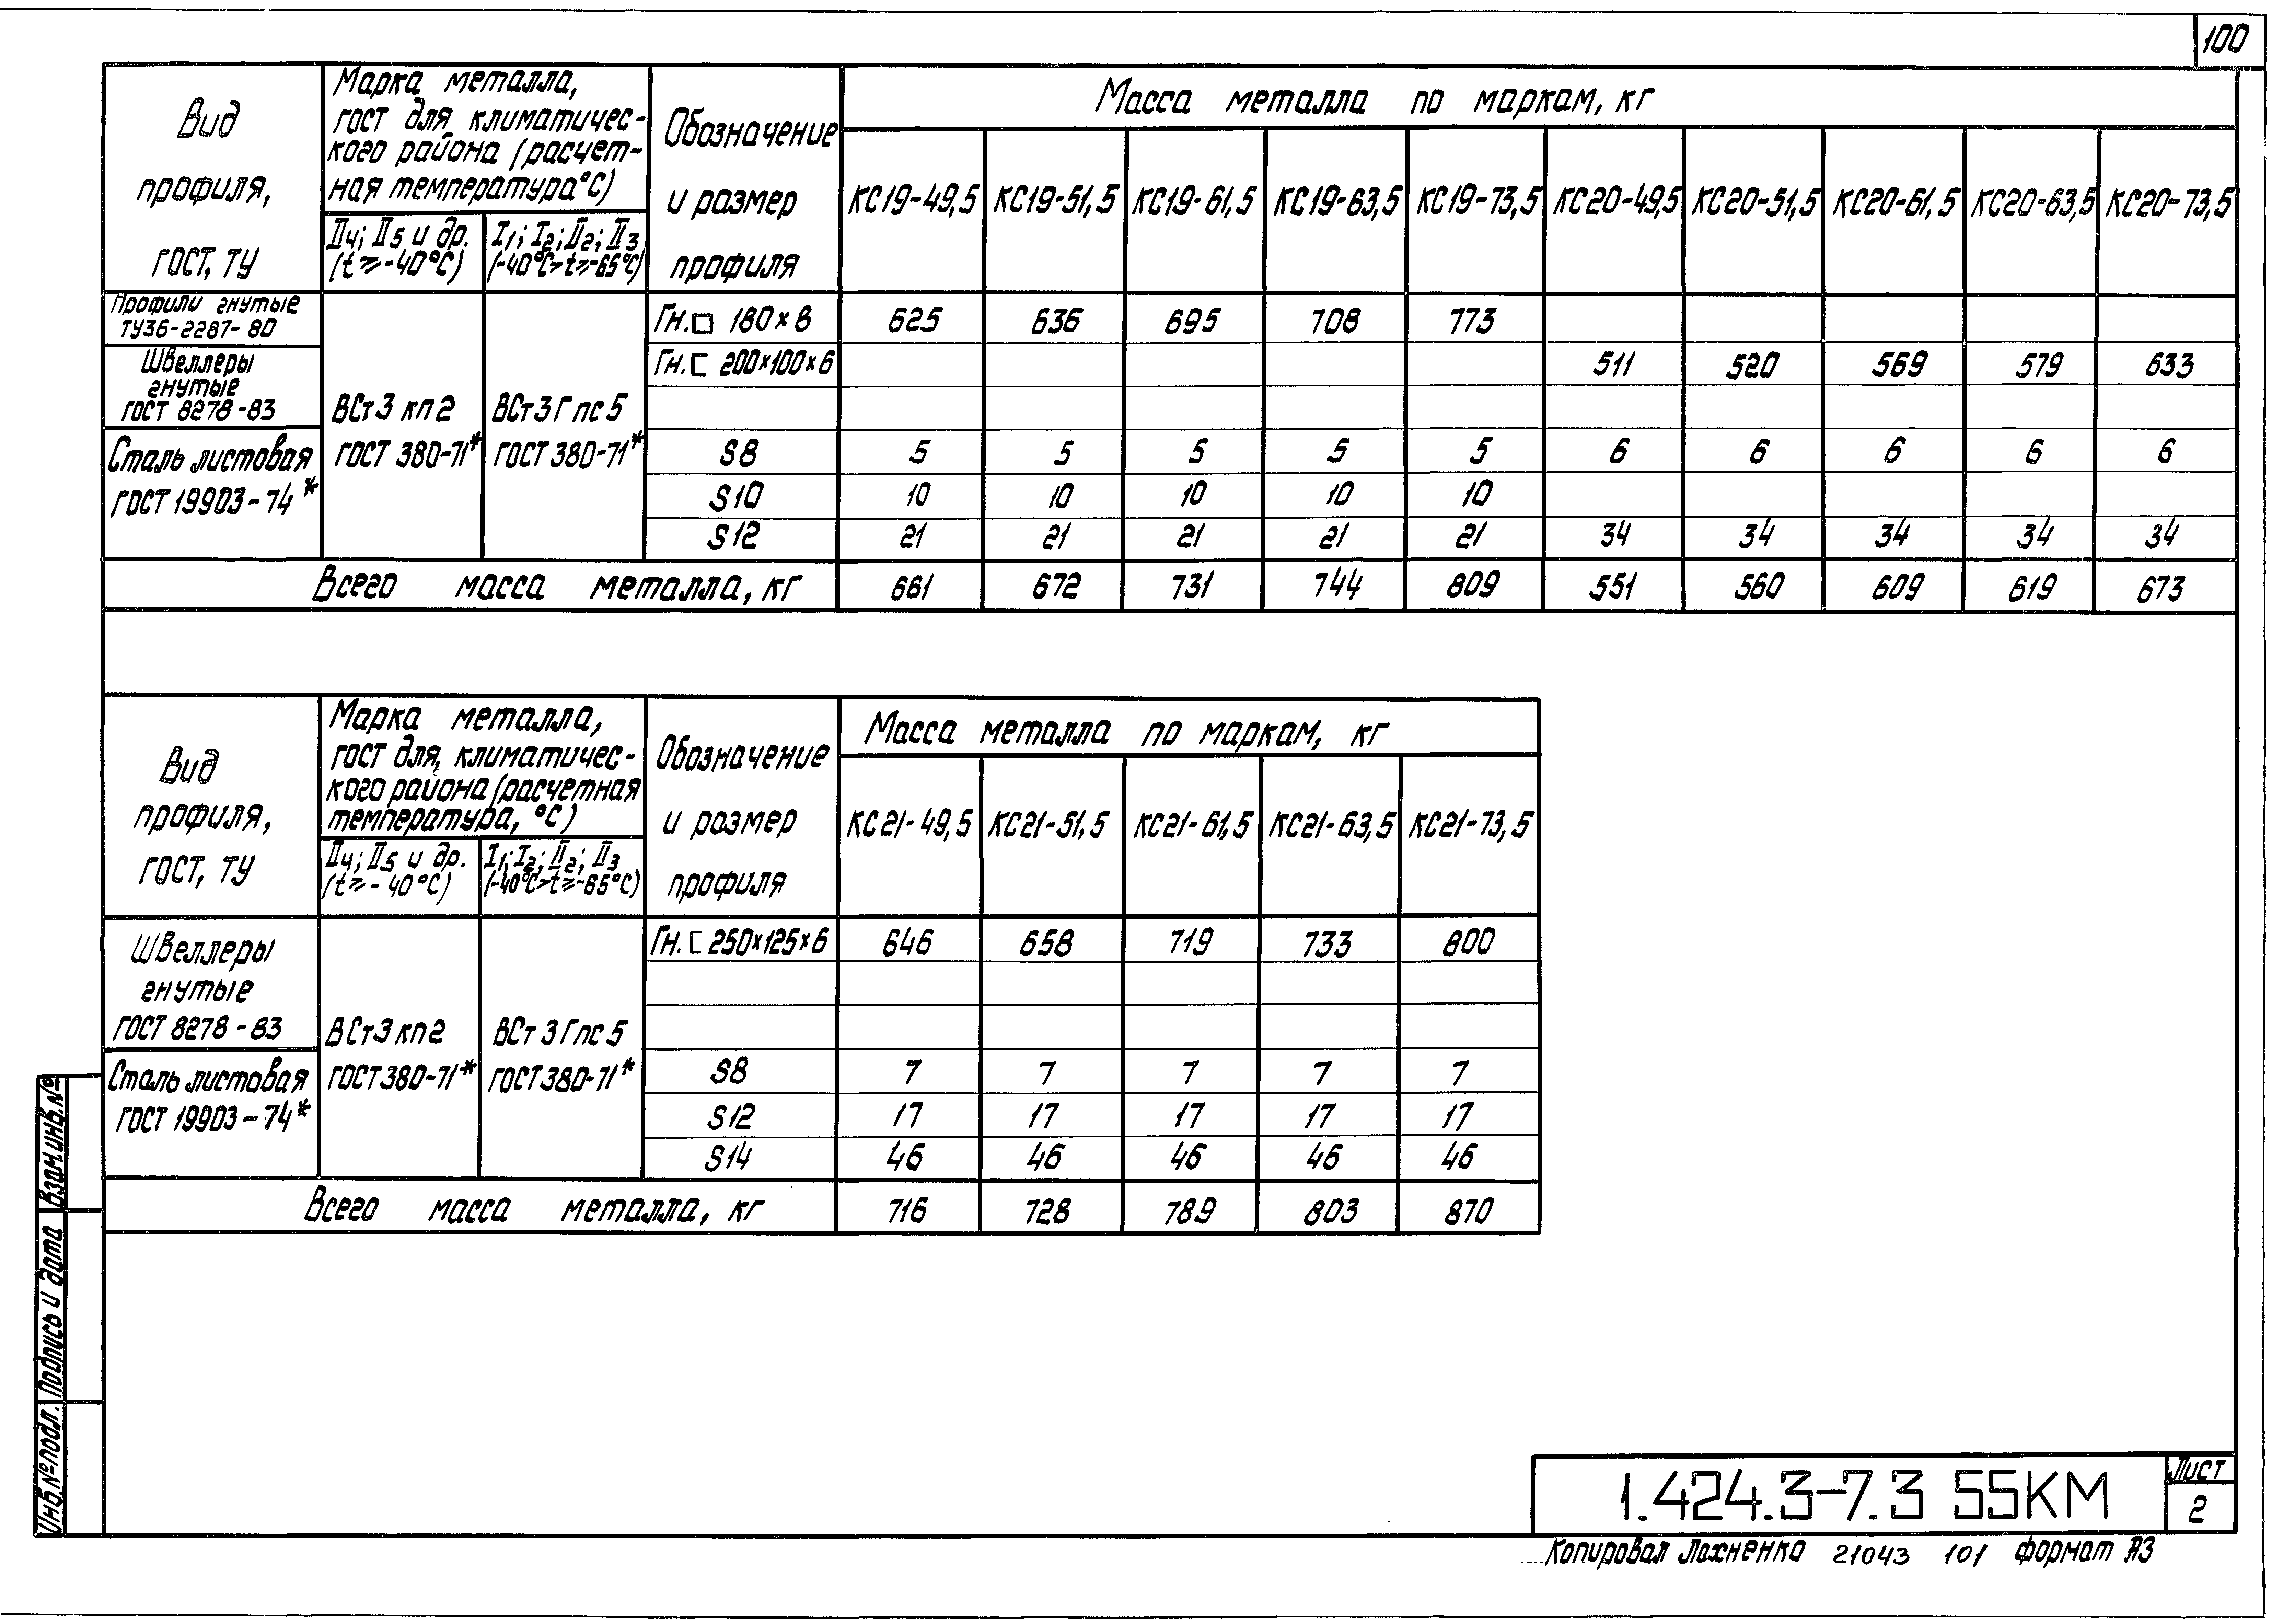 100
Вид профиля, ГОСТ, ТУ
Марка металла,
ГОСТ для климатичес-
кого района (расчет-
ная температура °С)
II4; II5 и др.
(t ⩾ -40°С)
I1; I2; II2; II3
(-40°С > t ⩾ -65°С)
Обозначение и размер профиля
Масса металла по маркам, кг
КС19-49,5 КС19-51,5 КС19-61,5 КС19-63,5 КС19-73,5 КС20-49,5 КС20-51,5 КС20-61,5 КС20-63,5 КС20-73,5
Профили гнутые
ТУ36-2287-80
Швеллеры
гнутые
ГОСТ 8278-83
Сталь листовая
ГОСТ 19903-74*
ВСт3кп2
ГОСТ 380-71*
ВСт3Гпс5
ГОСТ 380-71*
Гн.□ 180×8 625 636 695 708 773
Гн.[ 200×100×6 511 520 569 579 633
S8 5 5 5 5 5 6 6 6 6 6
S10 10 10 10 10 10
S12 21 21 21 21 21 34 34 34 34 34
Всего масса металла, кг 661 672 731 744 809 551 560 609 619 673
Вид профиля, ГОСТ, ТУ
Марка металла,
ГОСТ для, климатичес-
кого района (расчетная
температура, °С)
II4; II5 и др.
(t ⩾ -40°С)
I1; I2; II2; II3
(-40°С > t ⩾ -65°С)
Обозначение и размер профиля
Масса металла по маркам, кг
КС21-49,5 КС21-51,5 КС21-61,5 КС21-63,5 КС21-73,5
Швеллеры
гнутые
ГОСТ 8278-83
Сталь листовая
ГОСТ 19903-74*
ВСт3кп2
ГОСТ 380-71*
ВСт3Гпс5
ГОСТ 380-71*
Гн.[ 250×125×6 646 658 719 733 800
S8 7 7 7 7 7
S12 17 17 17 17 17
S14 46 46 46 46 46
Всего масса металла, кг 716 728 789 803 870
Взам инв.№
Подпись и дата
Инв.№ подл.
1.424.3-7.3 55КМ
Лист
2
Копировал Лахненко 21043 101 формат А3